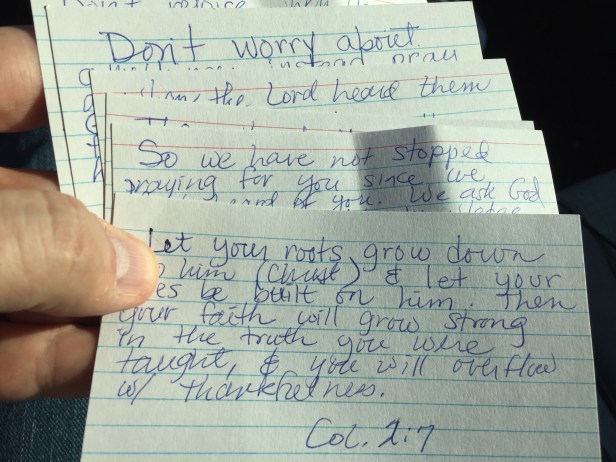 Don't worry about
instead pray
the Lord heard them
So we have not stopped
praying for you since we
of you. We ask God
Let your roots grow down
him (Christ) & let your
be built on him. Then
your faith will grow strong
in the truth you were
taught, & you will overflow
w/ thankfulness.
Col. 2:7